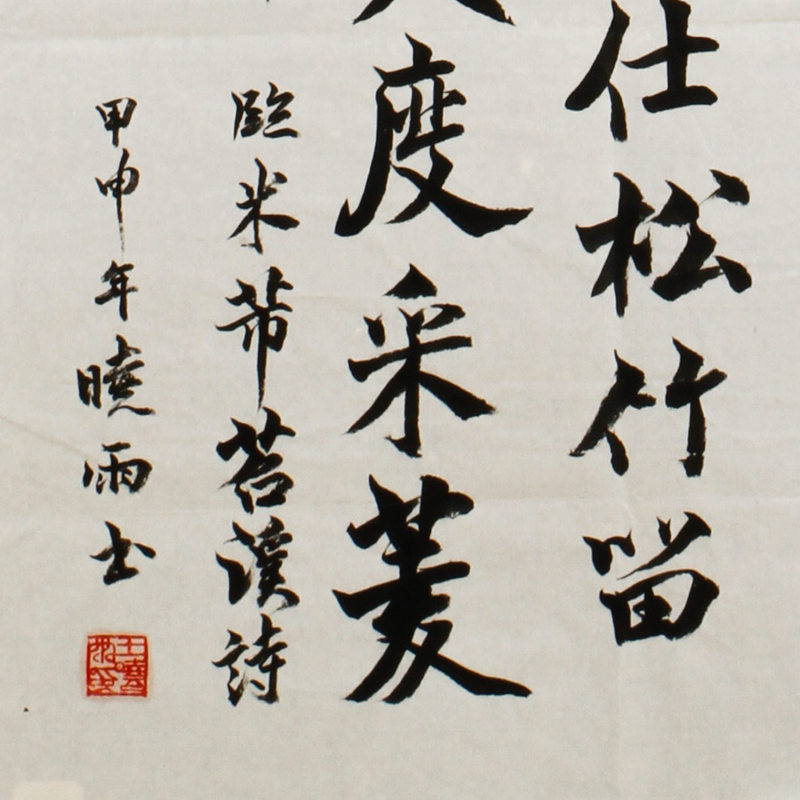 仕松竹留
度采菱
臨米芾苕溪詩
甲申年曉雨书